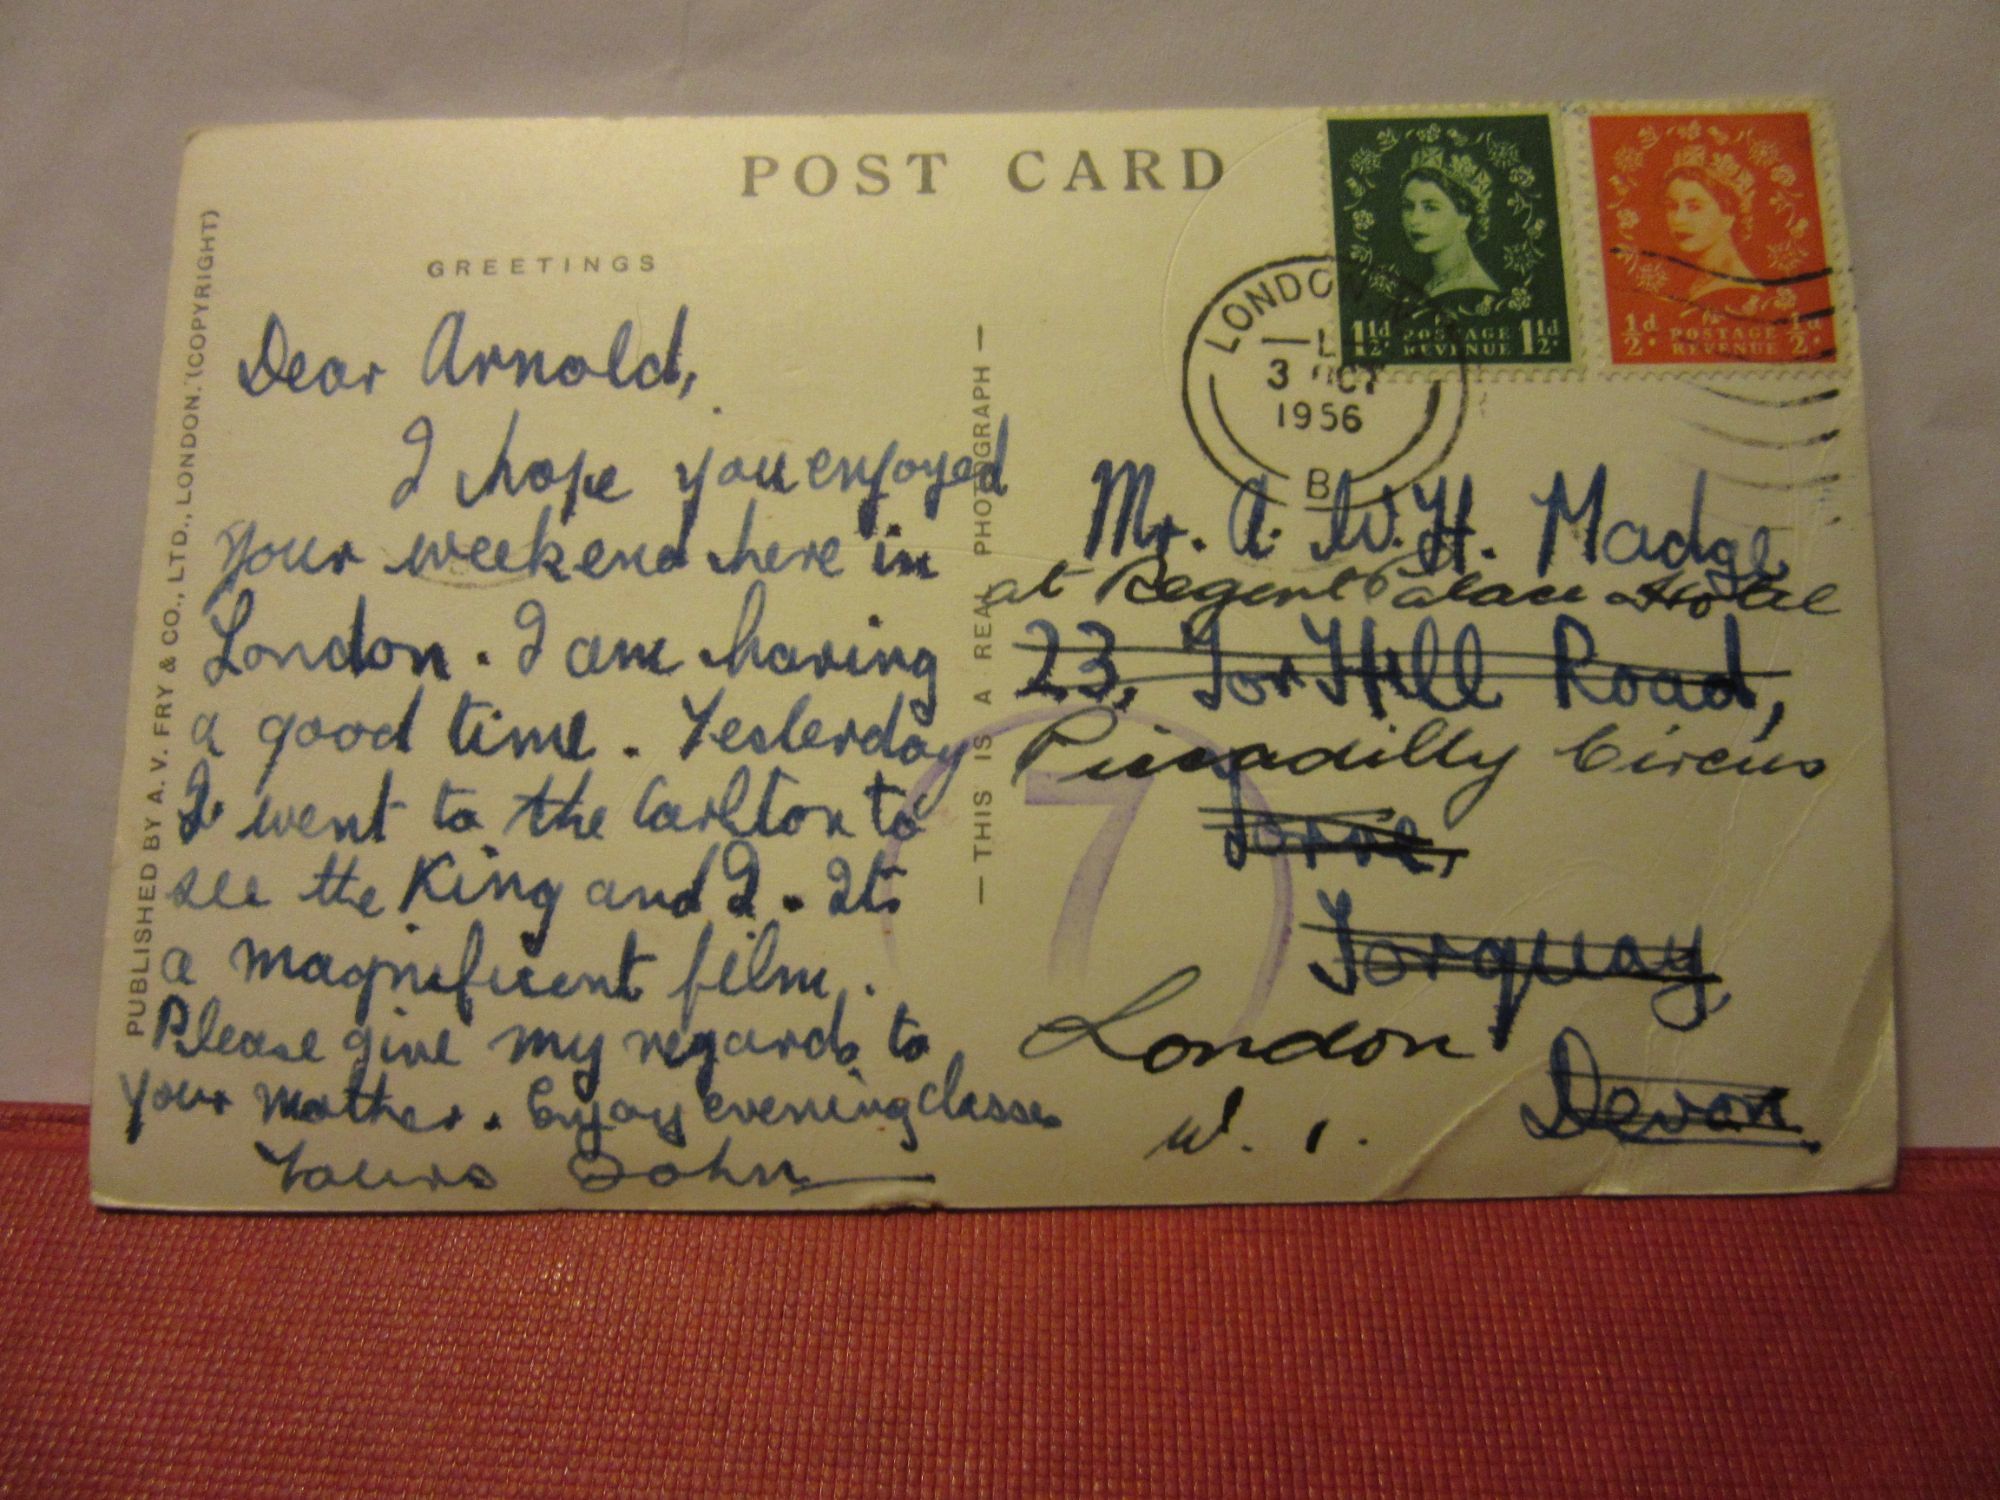 POST CARD
GREETINGS
Dear Arnold,
I hope you enjoyed
your weekend here in
London. I am having
a good time. Yesterday
I went to the Carlton to
see the King and I. Its
a magnificent film.
Please give my regards to
your mother. Enjoy evening classes
Yours John
PUBLISHED BY A. V. FRY & CO., LTD., LONDON. (COPYRIGHT)
— THIS IS A REAL PHOTOGRAPH —
LONDON
3 OCT
1956
B
1½d POSTAGE 1½d
REVENUE
½d POSTAGE ½d
REVENUE
Mr. A. W. H. Madge
at Regent Palace Hotel
23, Tor Hill Road,
Piccadilly Circus
Torre,
Torquay
London
Devon.
W. 1.
7